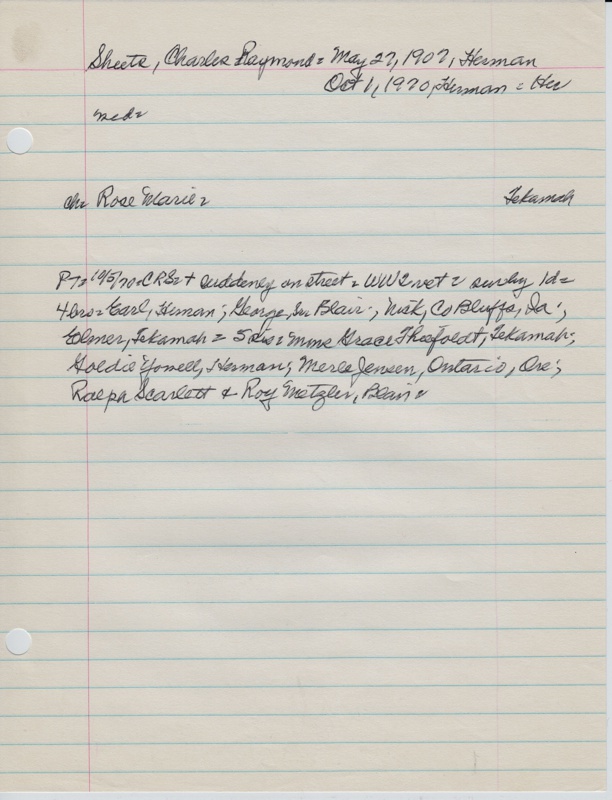 Sheets, Charles Raymond = May 27, 1907, Herman
Oct 1, 1970, Herman = Her
med=
ch= Rose Marie= Tekamah
PT= 10/5/70= CRS= + suddenly on street = WW2 vet = surv by 1d=
4 bros= Earl, Herman; George, Blair; Nick, Co Bluffs, Ia;
Elmer, Tekamah = 5 sis= Mmes Grace Tekamah;
Goldie Yowell, Herman; Merle Jensen, Ontario, Ore;
Ralph Scarlett & Roy Metzler, Blair=